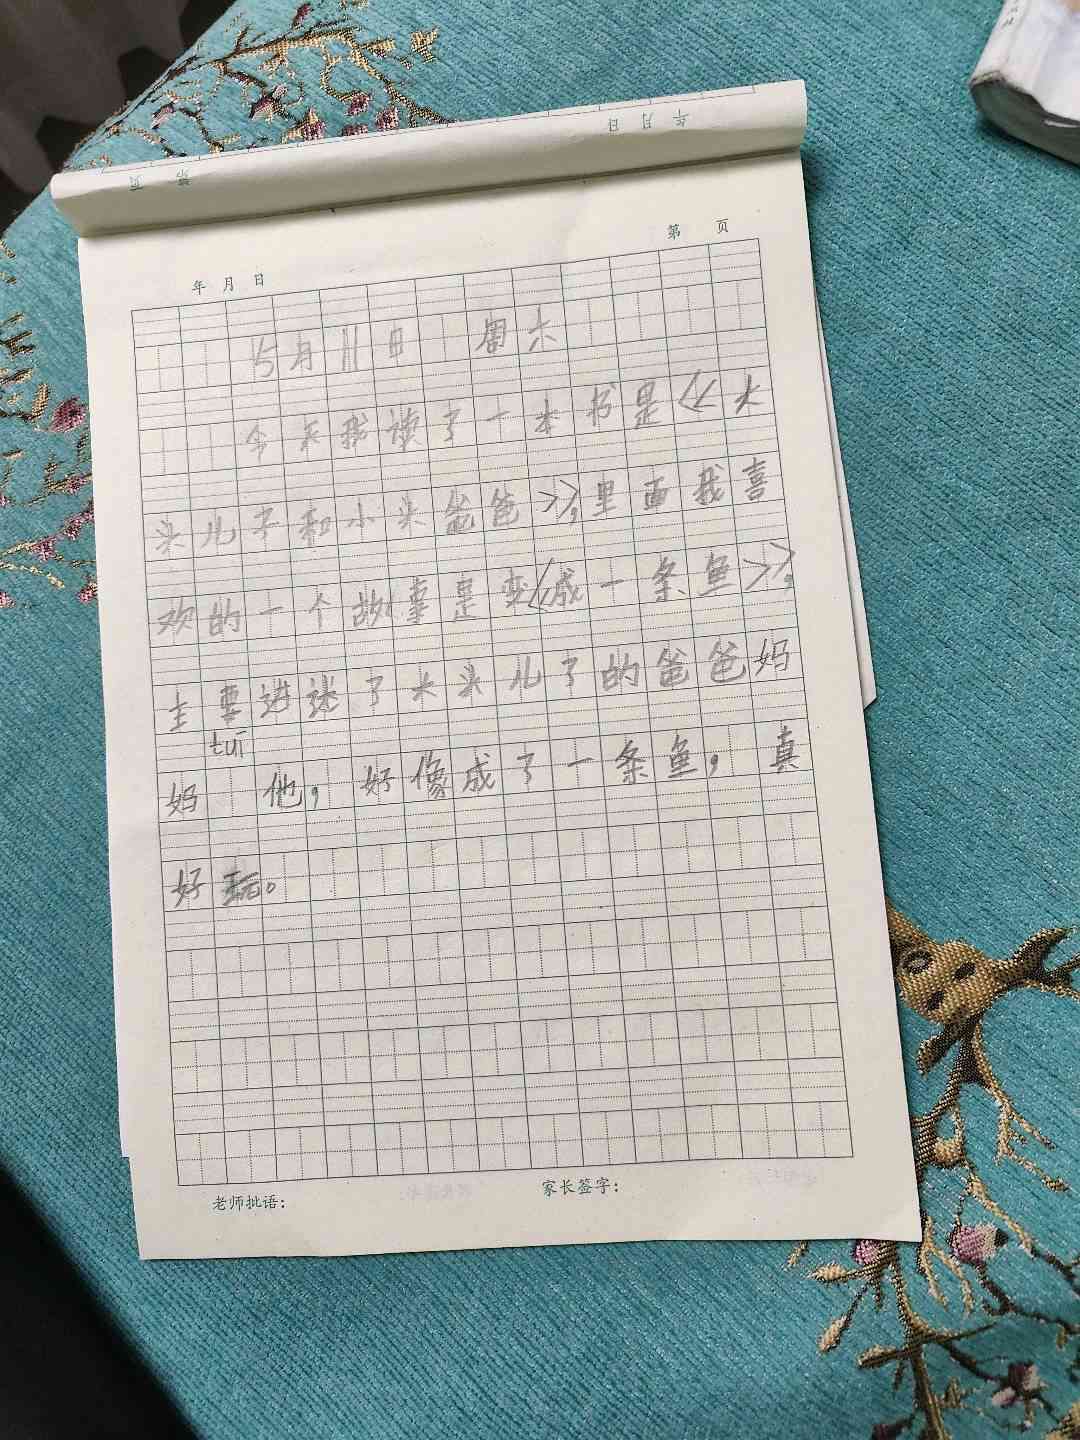 年 月 日
第 页
年 月 日
第 页
5月11日 周六
今天我读了一本书是《大
头儿子和小头爸爸》，里面我喜
欢的一个故事是变《成一条鱼》，
主要讲述了大头儿子的爸爸妈
tuī
妈 他，好像成了一条鱼，真
好玩。
老师批语：
家长签字：